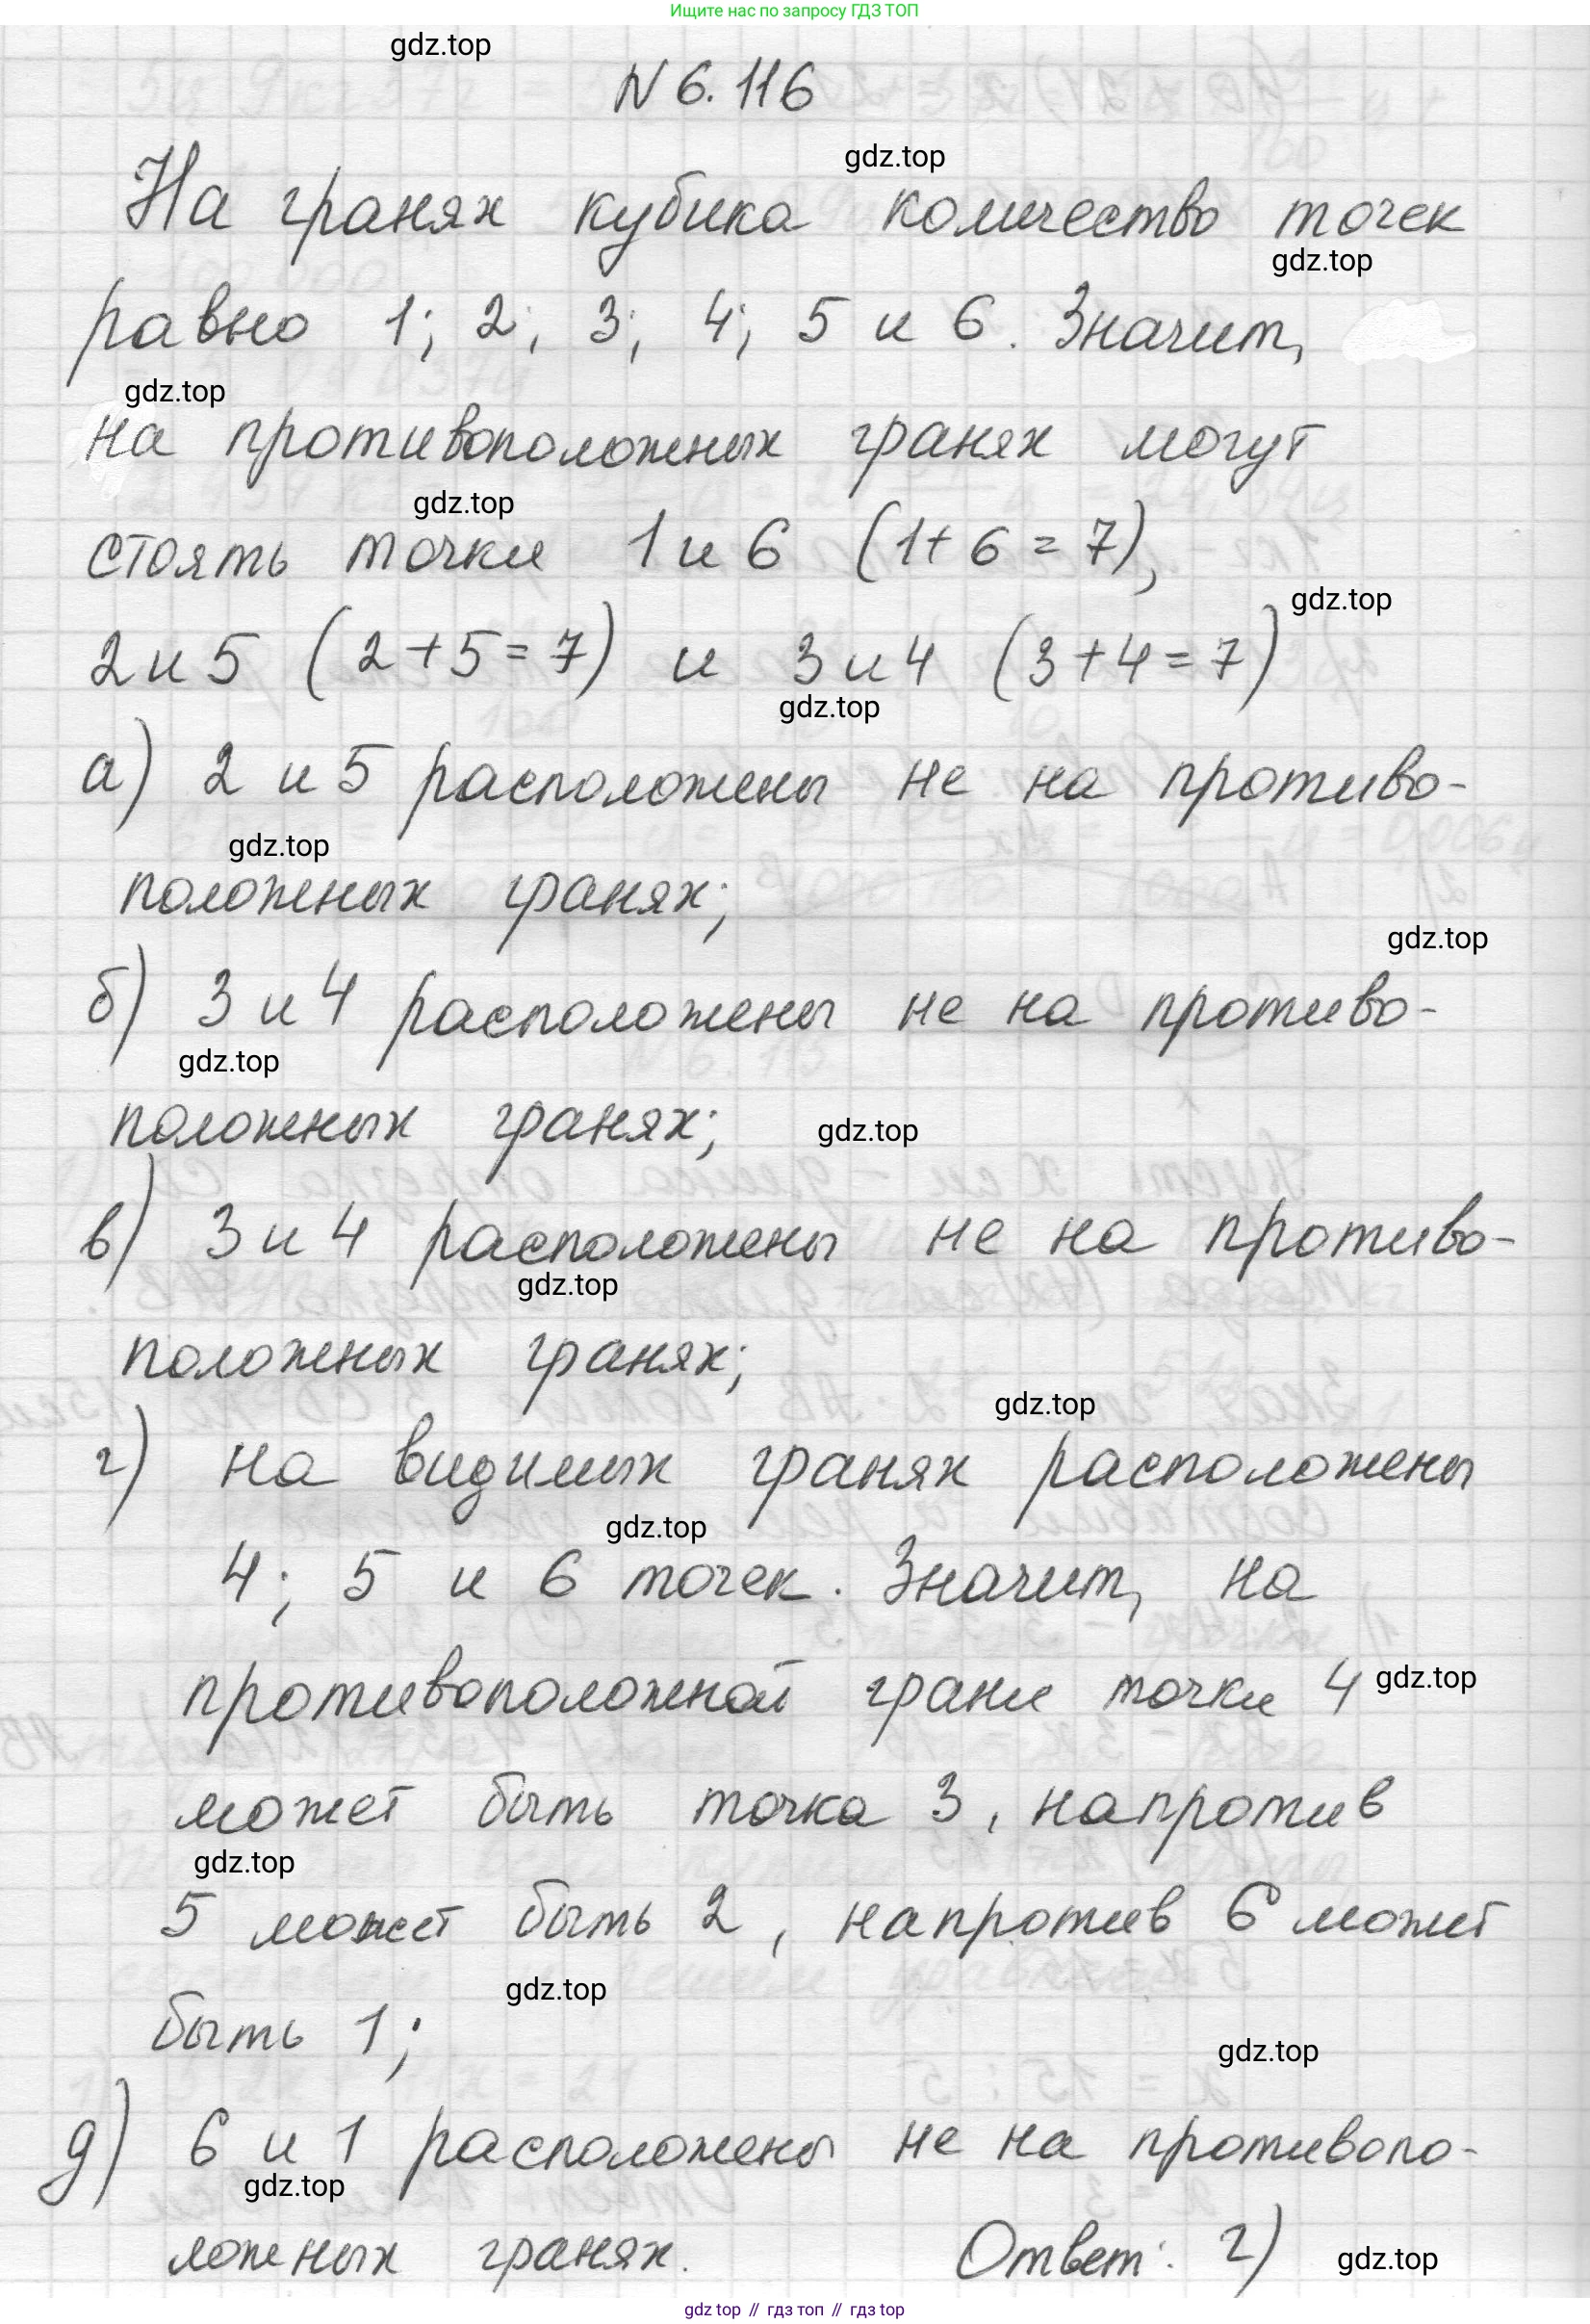 Ищите нас по запросу ГДЗ ТОП
gdz.top
N 6.116
gdz.top
На гранях кубика количество точек
gdz.top
равно 1; 2; 3; 4; 5 и 6. Значит,
gdz.top
на противоположных гранях могут
gdz.top
стоять точки 1 и 6 (1+6=7),
gdz.top
2 и 5 (2+5=7) и 3 и 4 (3+4=7)
gdz.top
а) 2 и 5 расположены не на противо-
gdz.top
положных гранях;
gdz.top
б) 3 и 4 расположены не на противо-
gdz.top
положных гранях;
gdz.top
в) 3 и 4 расположены не на противо-
gdz.top
положных гранях;
gdz.top
г) на видимых гранях расположены
gdz.top
4; 5 и 6 точек. Значит, на
противоположной грани точки 4
gdz.top
может быть точка 3, напротив
gdz.top
5 может быть 2, напротив 6 может
gdz.top
быть 1;
gdz.top
д) 6 и 1 расположены не на противопо-
gdz.top
ложных гранях. Ответ: г)
gdz.top
gdz top // гдз топ // gdz top